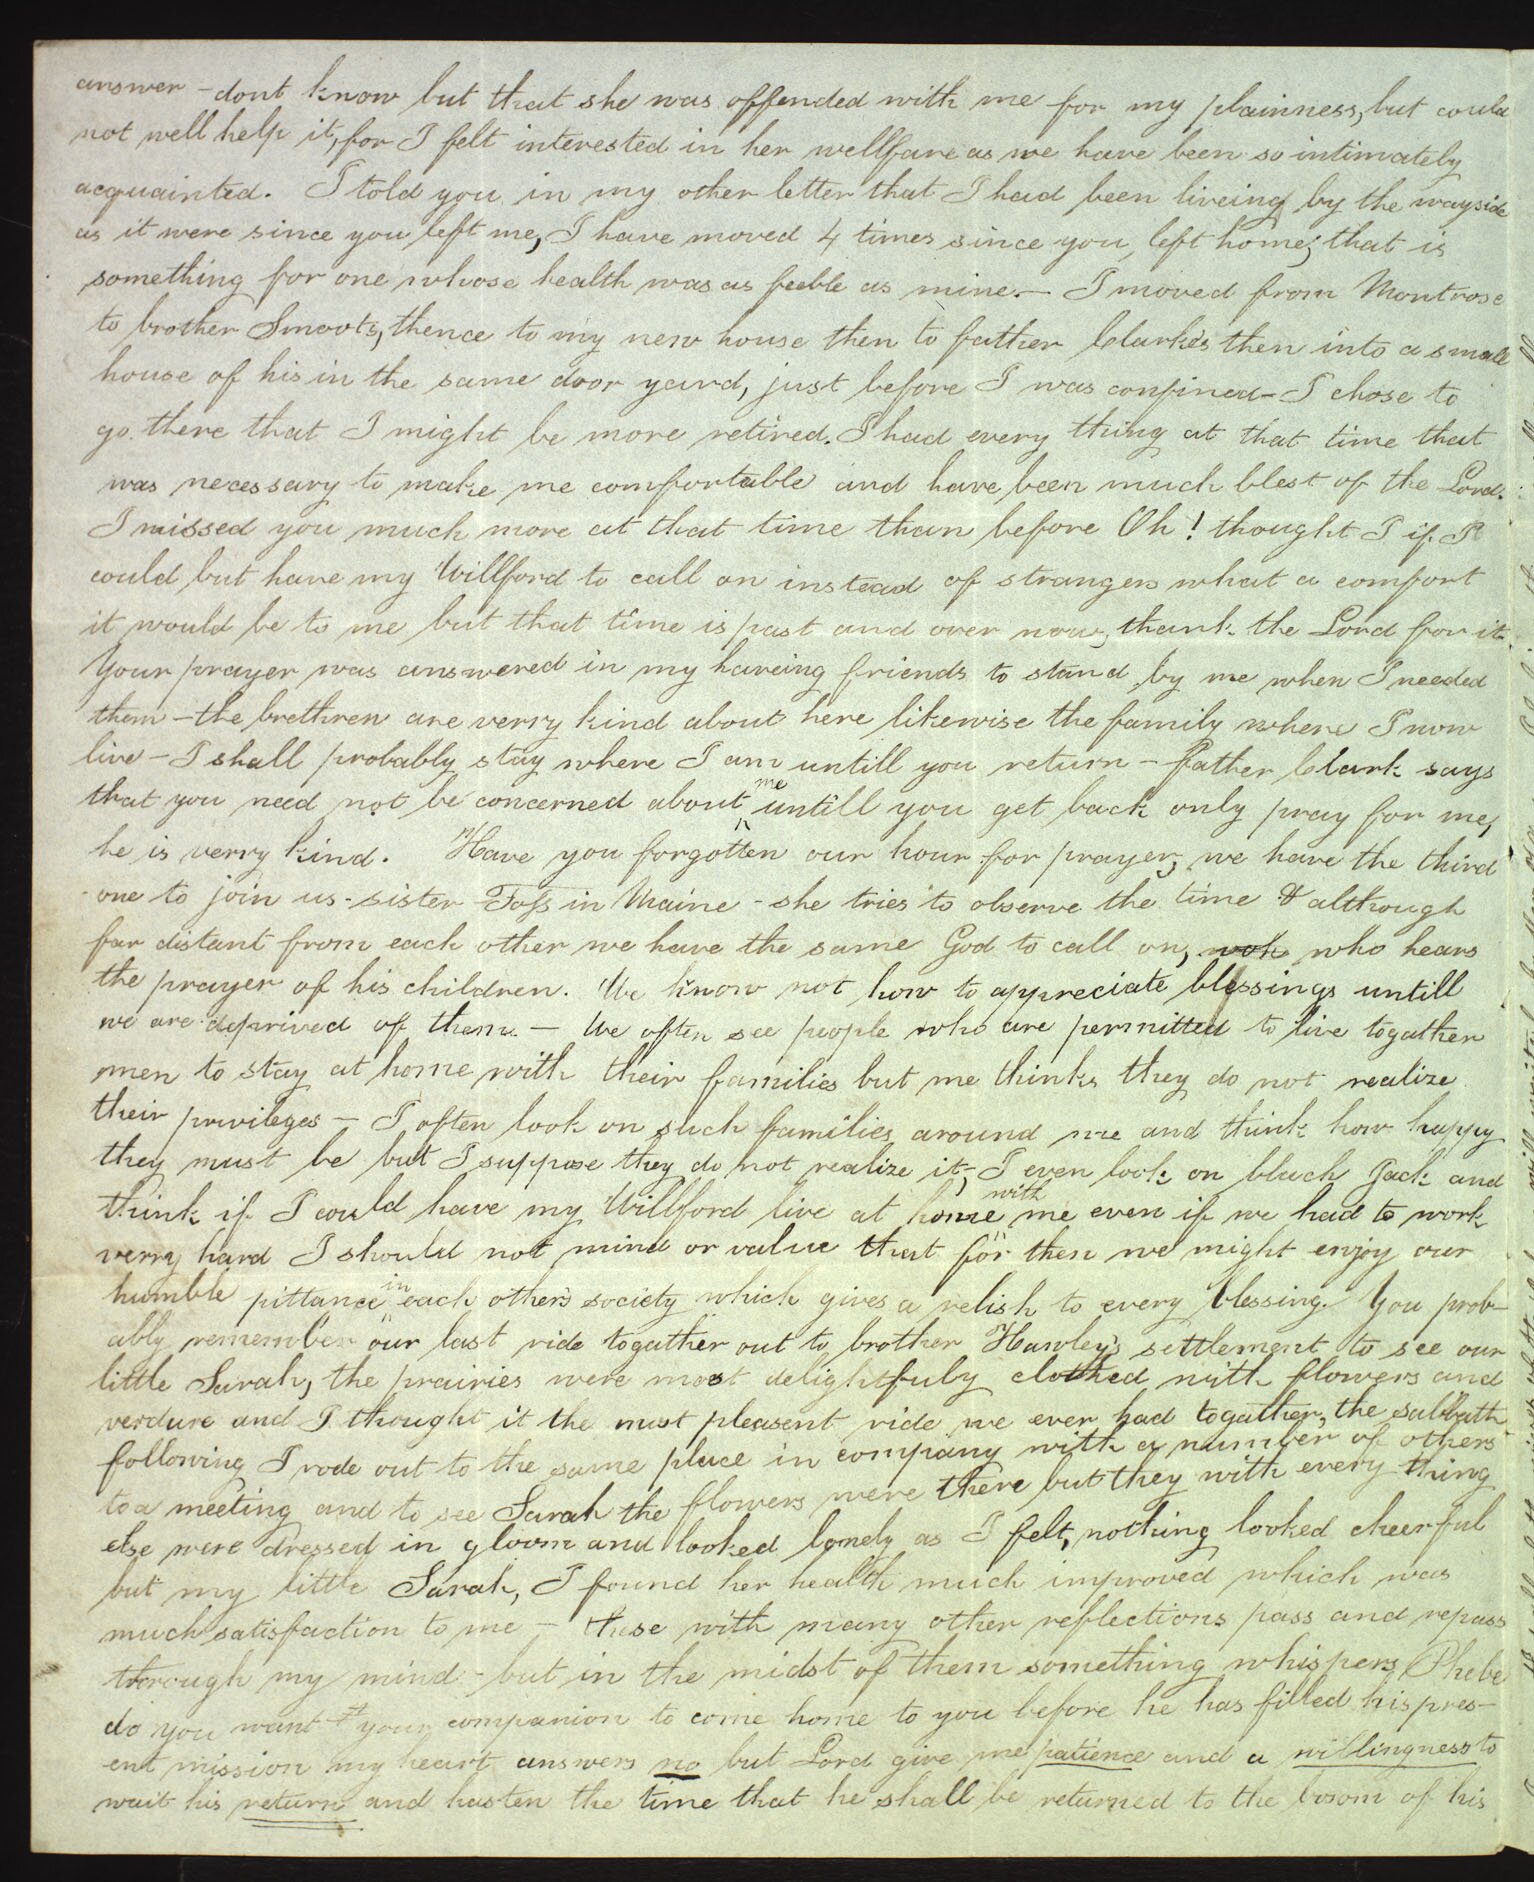 answer – dont know but that she was offended with me for my plainness, but could
not well help it, for I felt interested in her wellfare as we have been so intimately
acquainted. I told you in my other letter that I had been liveing by the wayside
as it were since you left me, I have moved 4 times since you left home, that is
something for one whose health was as feeble as mine. – I moved from Montrose
to brother Smoots, thence to my new house then to father Clarks then into a small
house of his in the same door yard, just before I was confined – I chose to
go there that I might be more retired. I had every thing at that time that
was necessary to make me comfortable and have been much blest of the Lord.
I missed you much more at that time than before Oh! thought I if I
could but have my Willford to call on instead of strangers what a comfort
it would be to me but that time is past and over now, thank the Lord for it
Your prayer was answered in my haveing friends to stand by me when I needed
them – the brethren are verry kind about here likewise the family where I now
live – I shall probably stay where I am untill you return – father Clark says
that you need not be concerned about me untill you get back only pray for me,
he is verry kind. Have you forgotten our hour for prayer, we have the third
one to join us – sister Foss in Maine – she tries to observe the time & although
far distant from each other we have the same God to call on, who hears
the prayer of his children. We know not how to appreciate blessings untill
we are deprived of them. – We often see people who are permitted to live togather
men to stay at home with their families but me thinks they do not realize
their privileges – I often look on such families around me and think how happy
they must be but I suppose they do not realize it, I even look on black Jack and
think if I could have my Willford live at home with me even if we had to work
verry hard I should not mind or value that for then we might enjoy our
humble pittance in each others society which gives a relish to every blessing. You prob-
ably remember our last ride togather out to brother Hawley's settlement to see our
little Sarah, the prairies were most delightfuly clothed with flowers and
verdure and I thought it the most pleasent ride we ever had togather, the sabbath
following I rode out to the same place in company with a number of others
to a meeting and to see Sarah the flowers were there but they with every thing
else were dressed in gloom and looked lonely as I felt, nothing looked cheerful
but my little Sarah, I found her health much improved which was
much satisfaction to me – these with many other reflections pass and repass
through my mind – but in the midst of them something whispers Phebe
do you want your companion to come home to you before he has filled his pres-
ent mission my heart answers no but Lord give me patience and a willingness to
wait his return and hasten the time that he shall be returned to the bosom of his